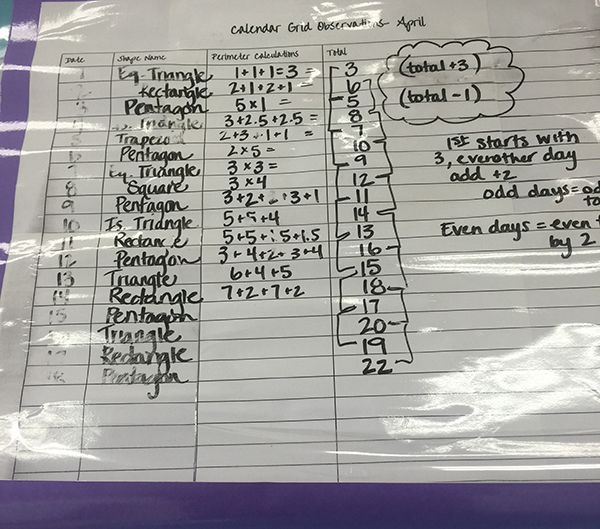 Calendar Grid Observations - April
Date Shape Name Perimeter Calculations Total
1 Eq. Triangle 1+1+1=3 = 3
2 Rectangle 2+1+2+1 = 6
3 Pentagon 5×1 = 5
4 Is. Triangle 3+2.5+2.5= 8
5 Trapezoid 2+3 1+1 = 7
6 Pentagon 2×5= 10
7 Eq. Triangle 3×3= 9
8 Square 3×4 12
9 Pentagon 3+2+ 3+1 11
10 Is. Triangle 5+5+4 14
11 Rectangle 5+5+1.5+1.5 13
12 Pentagon 3+4+2+3+4 16
13 Triangle 6+4+5 15
14 Rectangle 7+2+7+2 18
15 Pentagon 17
Triangle 20
17 Rectangle 19
Pentagon 22
(total+3)
(total-1)
1st starts with
3, everother day
add +2
odd days=od
to
Even days = even t
by 2